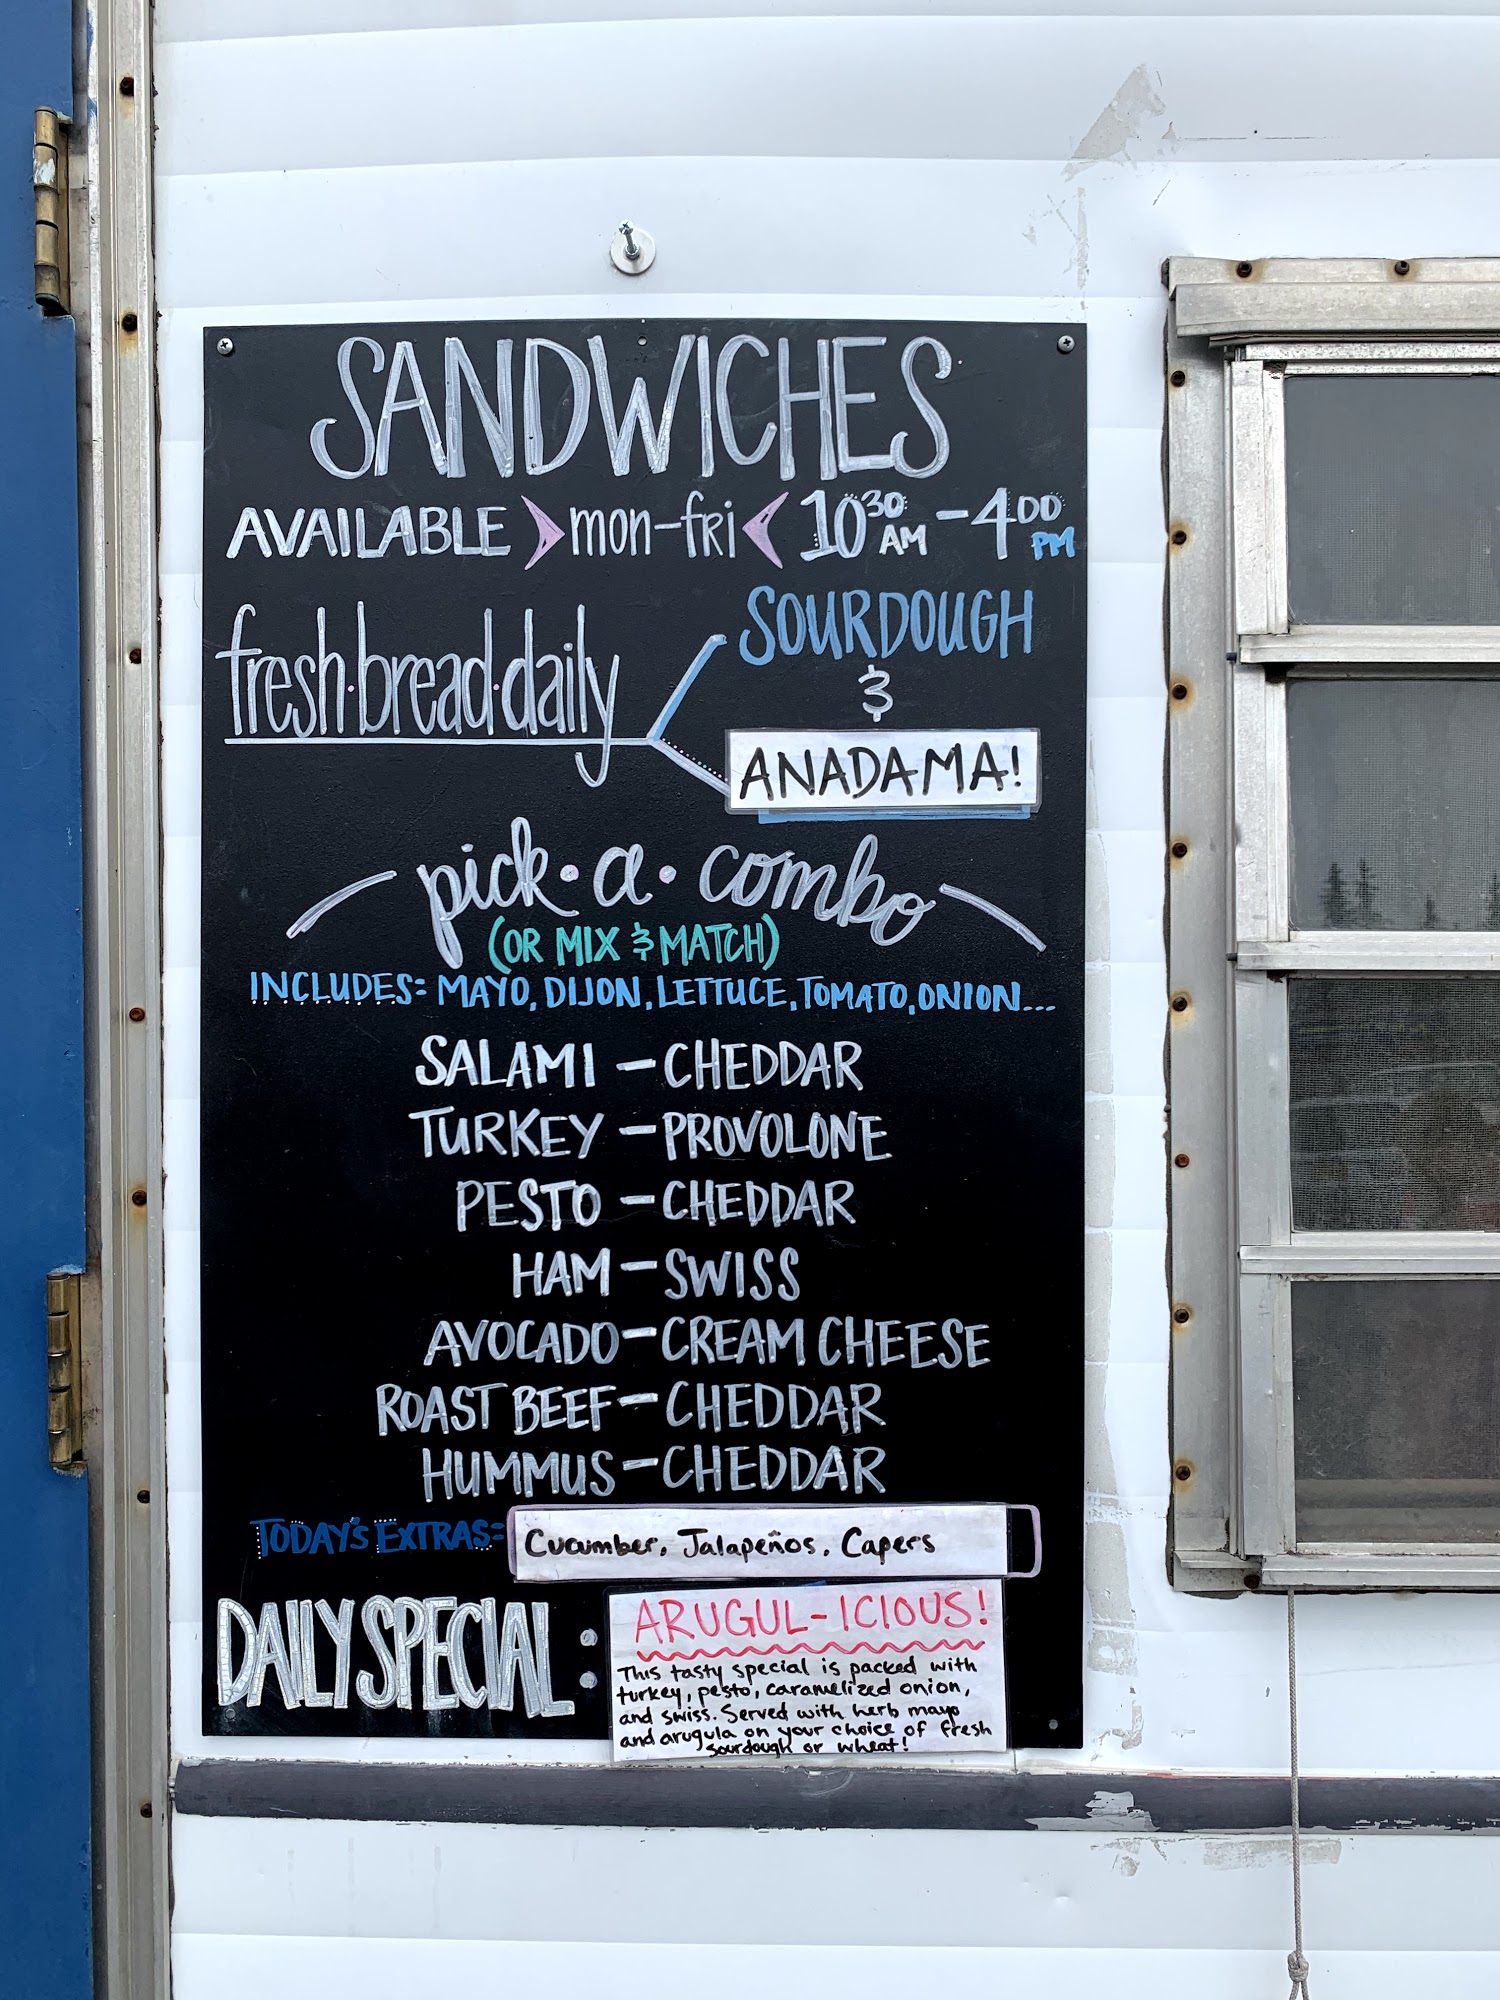 SANDWICHES
AVAILABLE > mon-fri < 10 30 AM - 4 00 PM
fresh·bread·daily
SOURDOUGH
&
ANADAMA!
pick·a·combo
(OR MIX & MATCH)
INCLUDES: MAYO, DIJON, LETTUCE, TOMATO, ONION...
SALAMI - CHEDDAR
TURKEY - PROVOLONE
PESTO - CHEDDAR
HAM - SWISS
AVOCADO - CREAM CHEESE
ROAST BEEF - CHEDDAR
HUMMUS - CHEDDAR
TODAY'S EXTRAS: Cucumber, Jalapeños, Capers
DAILY SPECIAL:
ARUGUL-ICIOUS!
This tasty special is packed with
turkey, pesto, caramelized onion,
and swiss. Served with herb mayo
and arugula on your choice of fresh
sourdough or wheat!